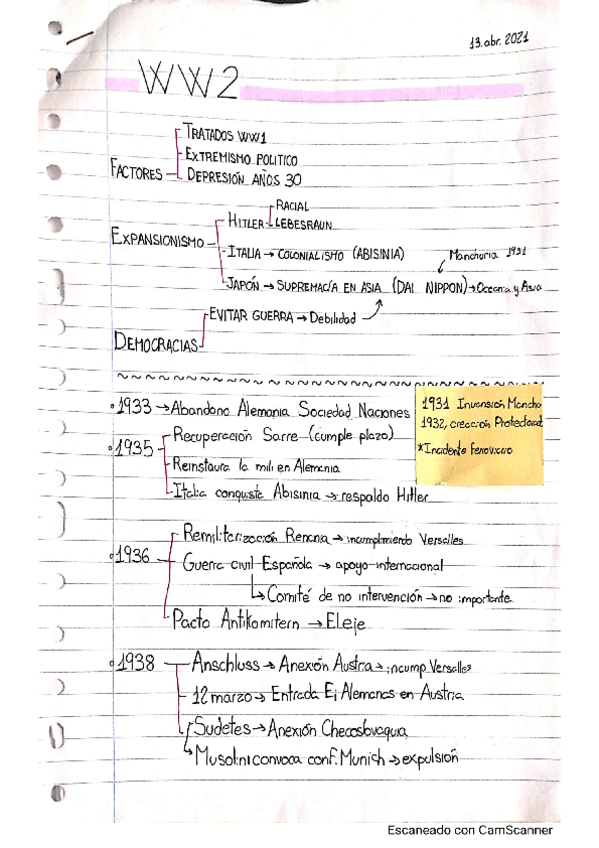 13.abr. 2021
WW2
TRATADOS WW1
EXTREMISMO POLITICO
FACTORES
DEPRESIÓN AÑOS 30
RACIAL
HITLER
LEBESRAUN
EXPANSIONISMO
ITALIA → COLONIALISMO (ABISINIA)
Manchuria 1931
JAPÓN → SUPREMACÍA EN ASIA (DAI NIPPON) → Oceania y Asia
EVITAR GUERRA → Debilidad
DEMOCRACIAS
1933 → Abandono Alemania Sociedad Naciones
1931 Invensión Manchu
1932, creación Protectorat
*Incidente ferroviario
1935
Recuperación Sarre (cumple plazo)
Reinstaura la mili en Alemania
Italia conquista Abisinia → respaldo Hitler
1936
Remilitarización Renana → incumplimiendo Versalles
Guerra civil Española → apoyo internacional
Comité de no intervención → no importante
Pacto Antikomitern → El eje
1938
Anschluss → Anexión Austra → incump Versalles
12 marzo → Entrada Ej Alemanas en Austria
Sudetes → Anexión Checoslovaquia
Musolini convoca conf. Munich → expulsión
Escaneado con CamScanner